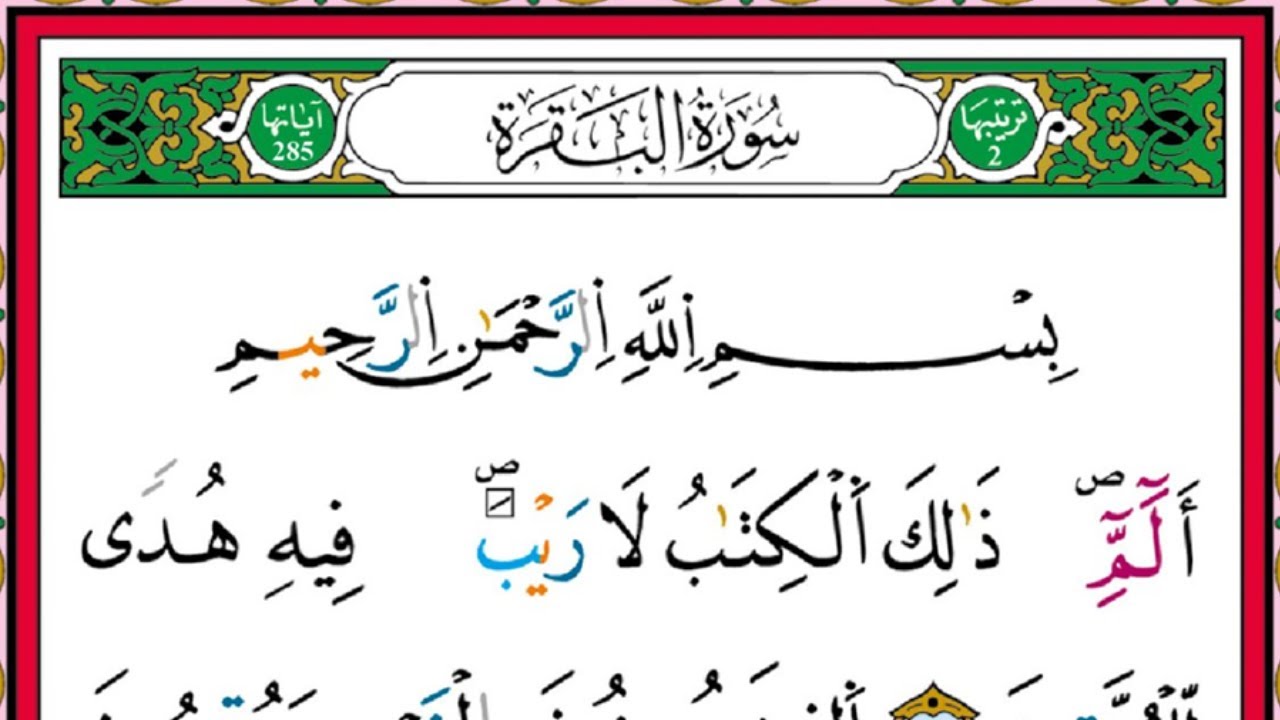 ترتيبها
2
سُورَةُ البَقَرَةِ
آياتها
285
بِسْمِ اِللَّهِ اِلرَّحْمَٰنِ اِلرَّحِيمِ
أَلَٓمِّٓۖ ذَٰلِكَ اَ۬لْكِتَٰبُ لَا رَيْبَۖ فِيهِ هُدىً